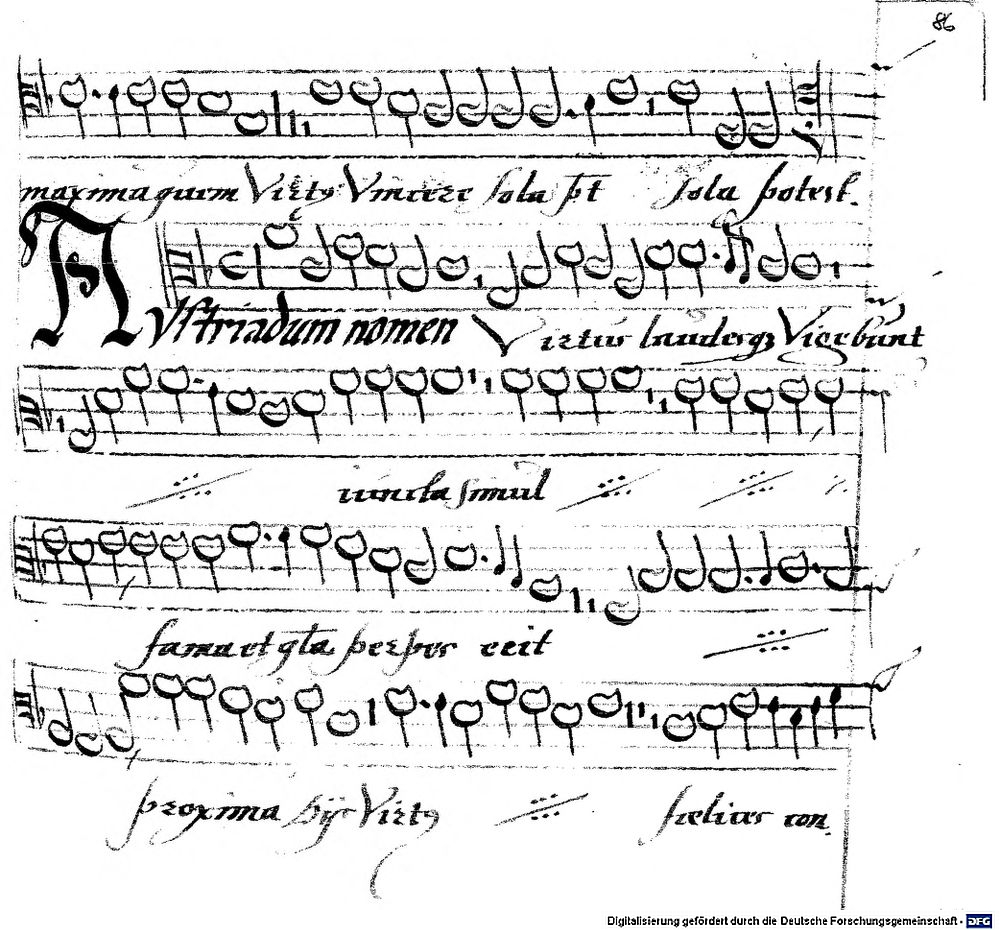 86
maxima quem Virtus Vincere sola pt sola potest.
AUstriadum nomen Virtus laudesq3 Vigebunt
iuncta simul
fama et gla perper eeit
proxima hijs Virtus
fœlices con
Digitalisierung gefördert durch die Deutsche Forschungsgemeinschaft - DFG